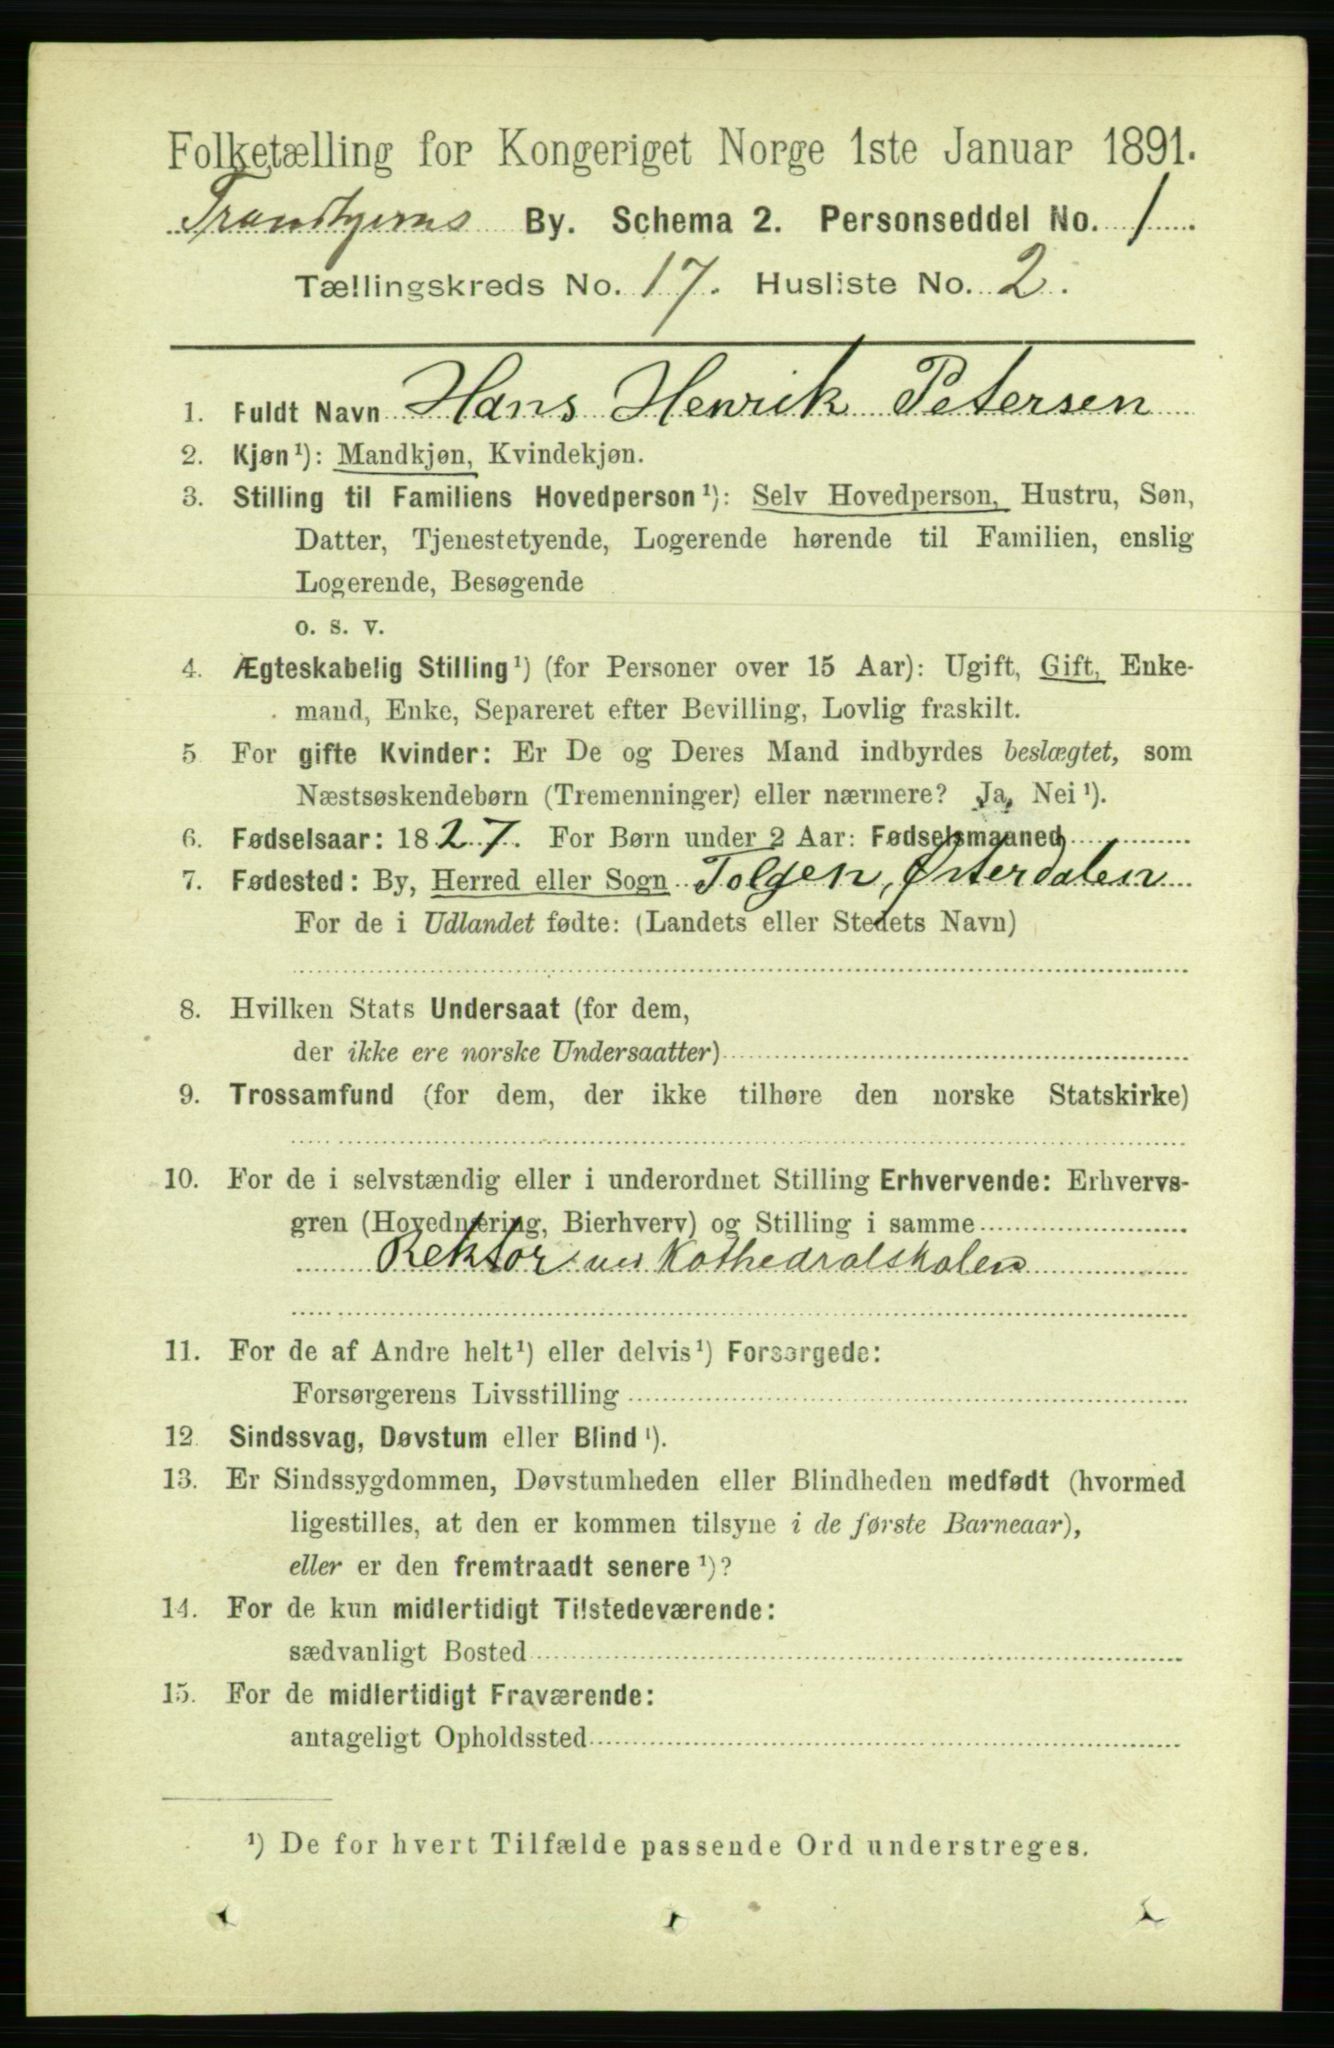 Folketælling for Kongeriget Norge 1ste Januar 1891.
Trondhjems By. Schema 2. Personseddel No. 1
Tællingskreds No. 17. Husliste No. 2.
1. Fuldt Navn Hans Henrik Petersen
2. Kjøn¹): Mandkjøn, Kvindekjøn.
3. Stilling til Familiens Hovedperson¹): Selv Hovedperson, Hustru, Søn,
Datter, Tjenestetyende, Logerende hørende til Familien, enslig
Logerende, Besøgende
o. s. v.
4. Ægteskabelig Stilling¹) (for Personer over 15 Aar): Ugift, Gift, Enke-
mand, Enke, Separeret efter Bevilling, Lovlig fraskilt.
5 For gifte Kvinder: Er De og Deres Mand indbyrdes beslægtet, som
Næstsøskendebørn (Tremenninger) eller nærmere? Ja, Nei¹).
6. Fødselsaar: 1827. For Børn under 2 Aar: Fødselsmaaned
7. Fødested: By, Herred eller Sogn Tolgen, Østerdalen
For de i Udlandet fødte: (Landets eller Stedets Navn)
8. Hvilken Stats Undersaat (for dem,
der ikke ere norske Undersaatter)
9. Trossamfund (for dem, der ikke tilhøre den norske Statskirke)
10. For de i selvstændig eller i underordnet Stilling Erhvervende: Erhvervs-
gren (Hovednæring, Bierhverv) og Stilling i samme
Rektor ved Kathedralskolen
11. For de af Andre helt¹) eller delvis¹) Forsørgede:
Forsørgerens Livsstilling
12. Sindssvag, Døvstum eller Blind¹).
13. Er Sindssygdommen, Døvstumheden eller Blindheden medfødt (hvormed
ligestilles, at den er kommen tilsyne i de første Barneaar),
eller er den fremtraadt senere¹)?
14. For de kun midlertidigt Tilstedeværende:
sædvanligt Bosted
15. For de midlertidigt Fraværende:
antageligt Opholdssted
¹) De for hvert Tilfælde passende Ord understreges.